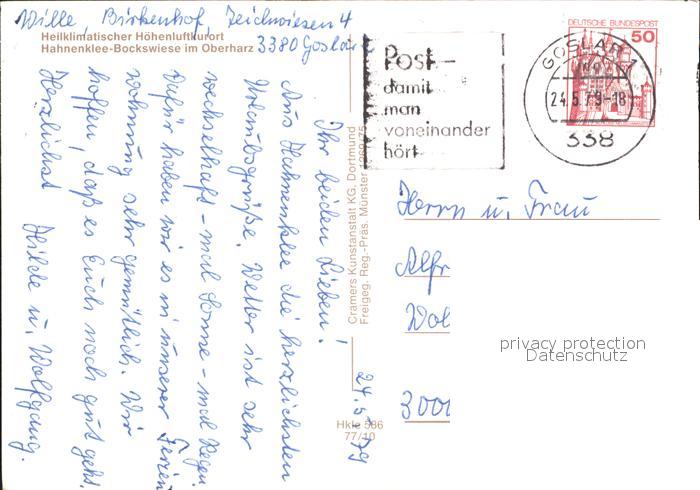 Wille, Birkenhof, Zeichwiesen 4
3380 Goslar
Heilklimatischer Höhenluftkurort
Hahnenklee-Bockswiese im Oberharz
24.5.79
Ihr beiden Lieben!
Aus Hahnenklee die herzlichsten
Urlaubsgrüße. Wetter ist sehr
wechselhaft - mal Sonne - mal Regen.
Dafür haben wir es in unserer Ferien
wohnung sehr gemütlich. Wir
hoffen, daß es Euch noch gut geht.
Herzlichst Hilde u. Wolfgang.
Cramers Kunstanstalt KG, Dortmund
Freigeg. Reg.-Präs. Münster 1269/75
Hkle 586
77/10
Post-
damit
man
voneinander
hört
GOSLAR 1
24.5.79-18
338
DEUTSCHE BUNDESPOST
50
Herrn u. Frau
Alfr
Wol
3000
privacy protection
Datenschutz